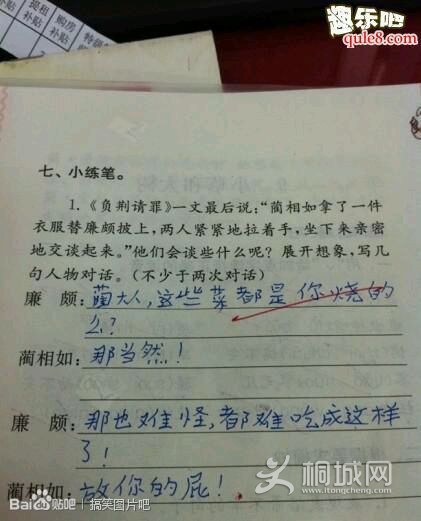 提租
补贴
购房
补贴
特
趣乐吧
qule8.com
七、小练笔。
1.《负荆请罪》一文最后说:“蔺相如拿了一件
衣服替廉颇披上,两人紧紧地拉着手,坐下来亲密
地交谈起来。”他们会谈些什么呢?展开想象,写几
句人物对话。(不少于两次对话)
廉 颇:蔺大人,这些菜都是你烧的
么?
蔺相如:那当然!
廉 颇:那也难怪,都难吃成这样
了!
蔺相如:放你的屁!
Bai百度 贴吧 | 搞笑图片吧
桐城网
www.itongcheng.com